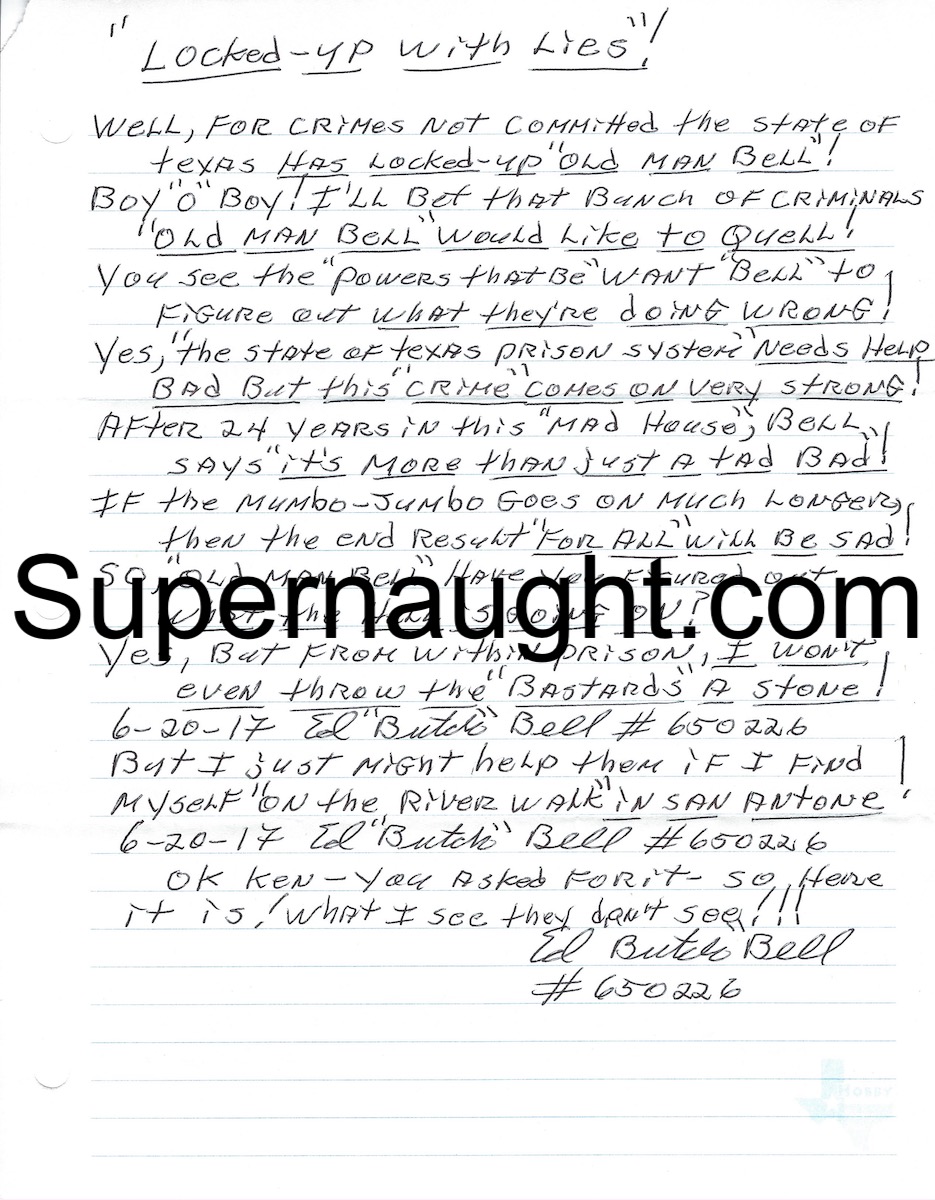 "Locked-up with Lies"!
Well, for crimes not committed the state of
texas has locked-up "old man Bell"!
Boy "o" Boy! I'll bet that bunch of criminals
"old man Bell" would like to quell!
You see the "powers that be" want "Bell" to
figure out what they're doing wrong!
Yes, "the state of texas prison system" needs help
bad but this "crime" comes on very strong!
After 24 years in this "mad house", Bell
says "it's more than just a tad bad"!
If the mumbo-jumbo goes on much longer,
then the end result "for all" will be sad!
So, "old man Bell" have you figured out
what the hell is going on?
Supernaught.com
Yes, but from within prison, I won't
even throw the "bastards" a stone!
6-20-17 Ed "Butch" Bell # 650226
But I just might help them if I find
myself "on the river walk" in San Antone!
6-20-17 Ed "Butch" Bell # 650226
OK Ken - you asked for it - so here
it is! What I see they don't see!!!
Ed "Butch" Bell
# 650226
Hobby